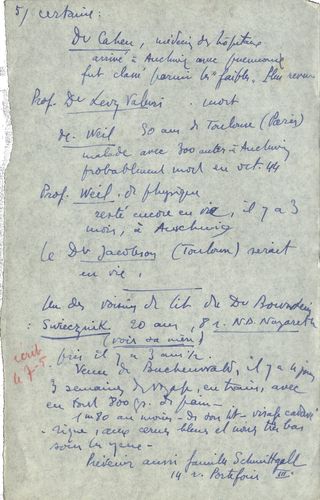 5/ certaine :
Dr Cahen, médecin des hôpitaux
arrivé à Auschwig avec pneumonie
fut classé parmi les faibles.
Prof. Dr Levy Valensi . mort
Dr. Weil 50 ans de Toulouse (Paris)
malade avec 300 autres à Auschwig
probablement mort en oct. 44
Prof. Weil . de physique
reste encore en vie, il y a 3
mois, à Auschwig
Le Dr Jacobson (Toulouse) serait
en vie,
Un des voisins de lit du Dr
: Swiecznik 20 ans, 8 r. N.D. Nazareth
(voir sa mère)
pris il y a 3 ans ½
Venu de Buchenwald, il y a
3 semaines de voyage, en train, avec
en tout 800 gr. de pain -
1m80 au moins - de son lit - visage cadavé-
rique, aux cernes bleus et noirs très bas
sous les yeux -
Prévenir aussi famille
14 r. Portefoin III